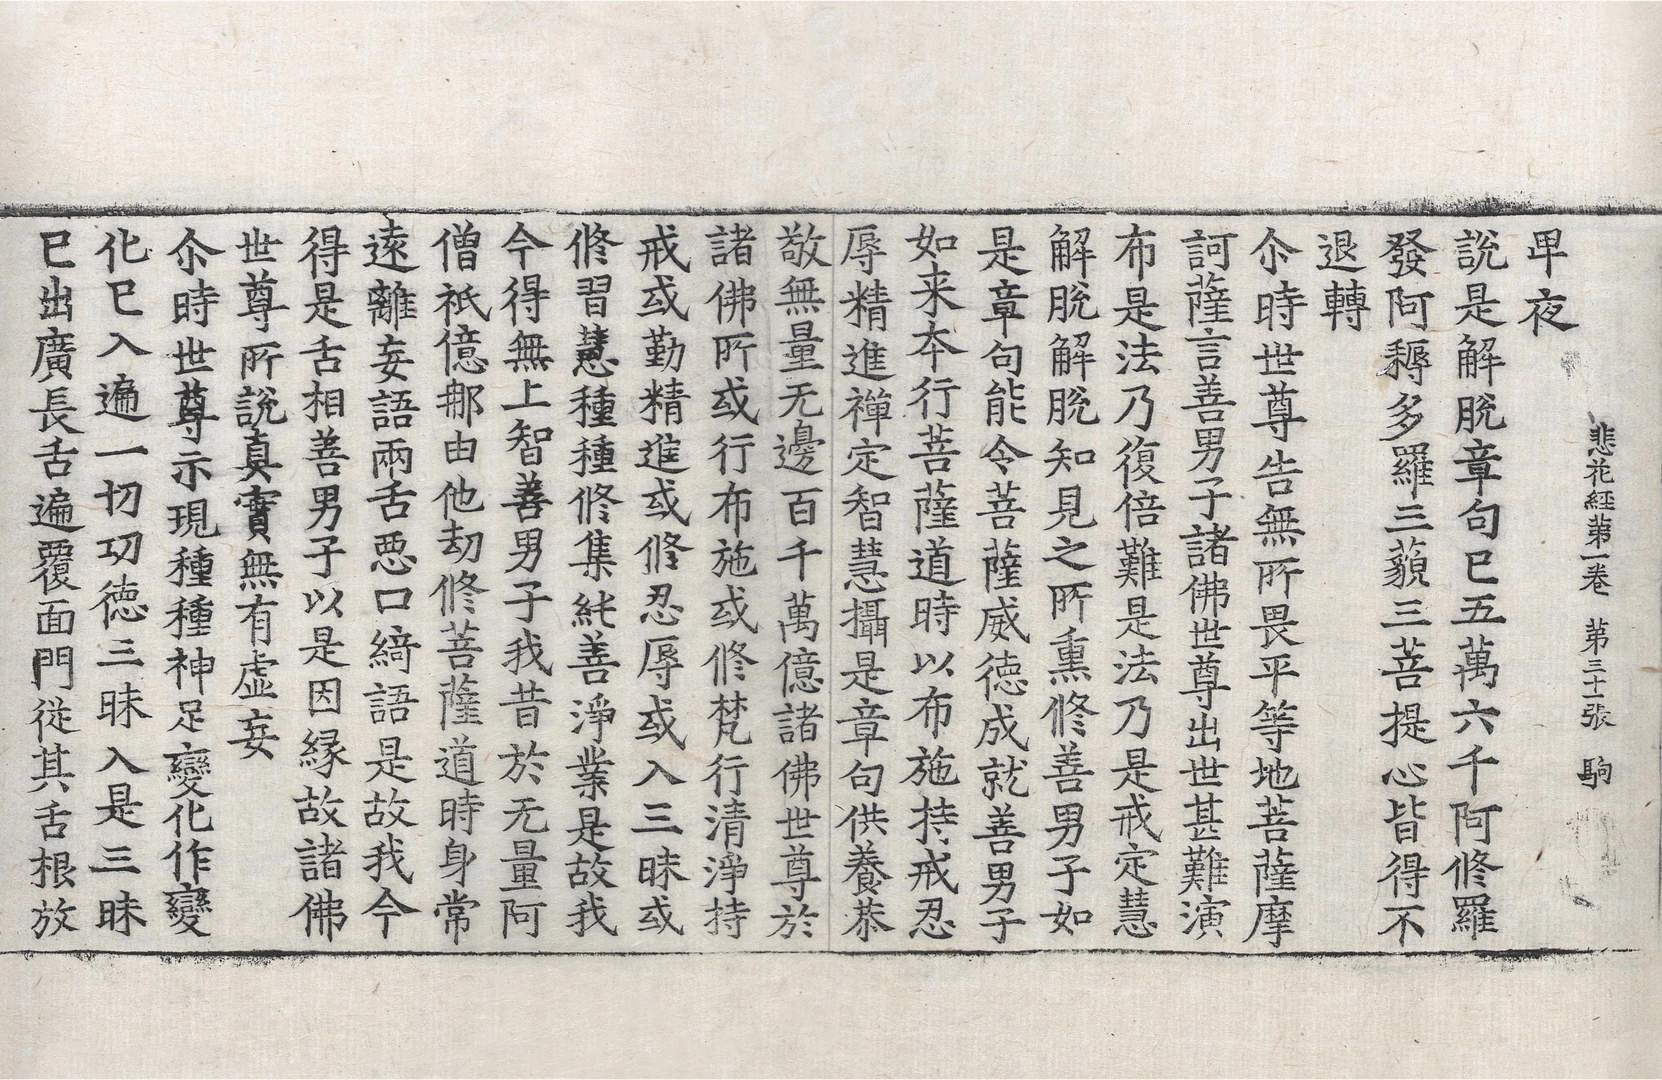 悲花経苐一卷 苐三十張 駒
䍐夜
說是解脫章句已五萬六千阿修羅
發阿耨多羅三藐三菩提心皆得不
退轉
尒時世尊告無所畏平等地菩薩摩
訶薩言善男子諸佛世尊出世甚難演
布是法乃復倍難是法乃是戒定慧
解脫解脫知見之所熏修善男子如
是章句能令菩薩威德成就善男子
如来本行菩薩道時以布施持戒忍
辱精進禪定智慧攝是章句供養恭
敬無量无邊百千萬億諸佛世尊於
諸佛所或行布施或修梵行清淨持
戒或勤精進或修忍辱或入三昧或
修習慧種種修集純善淨業是故我
今得無上智善男子我昔於无量阿
僧祇億那由他劫修菩薩道時身常
遠離妄語兩舌惡口綺語是故我今
得是舌相善男子以是因緣故諸佛
世尊所說真實無有虛妄
尒時世尊示現種種神足變化作變
化已入遍一切功德三昧入是三昧
已出廣長舌遍覆面門從其舌根放